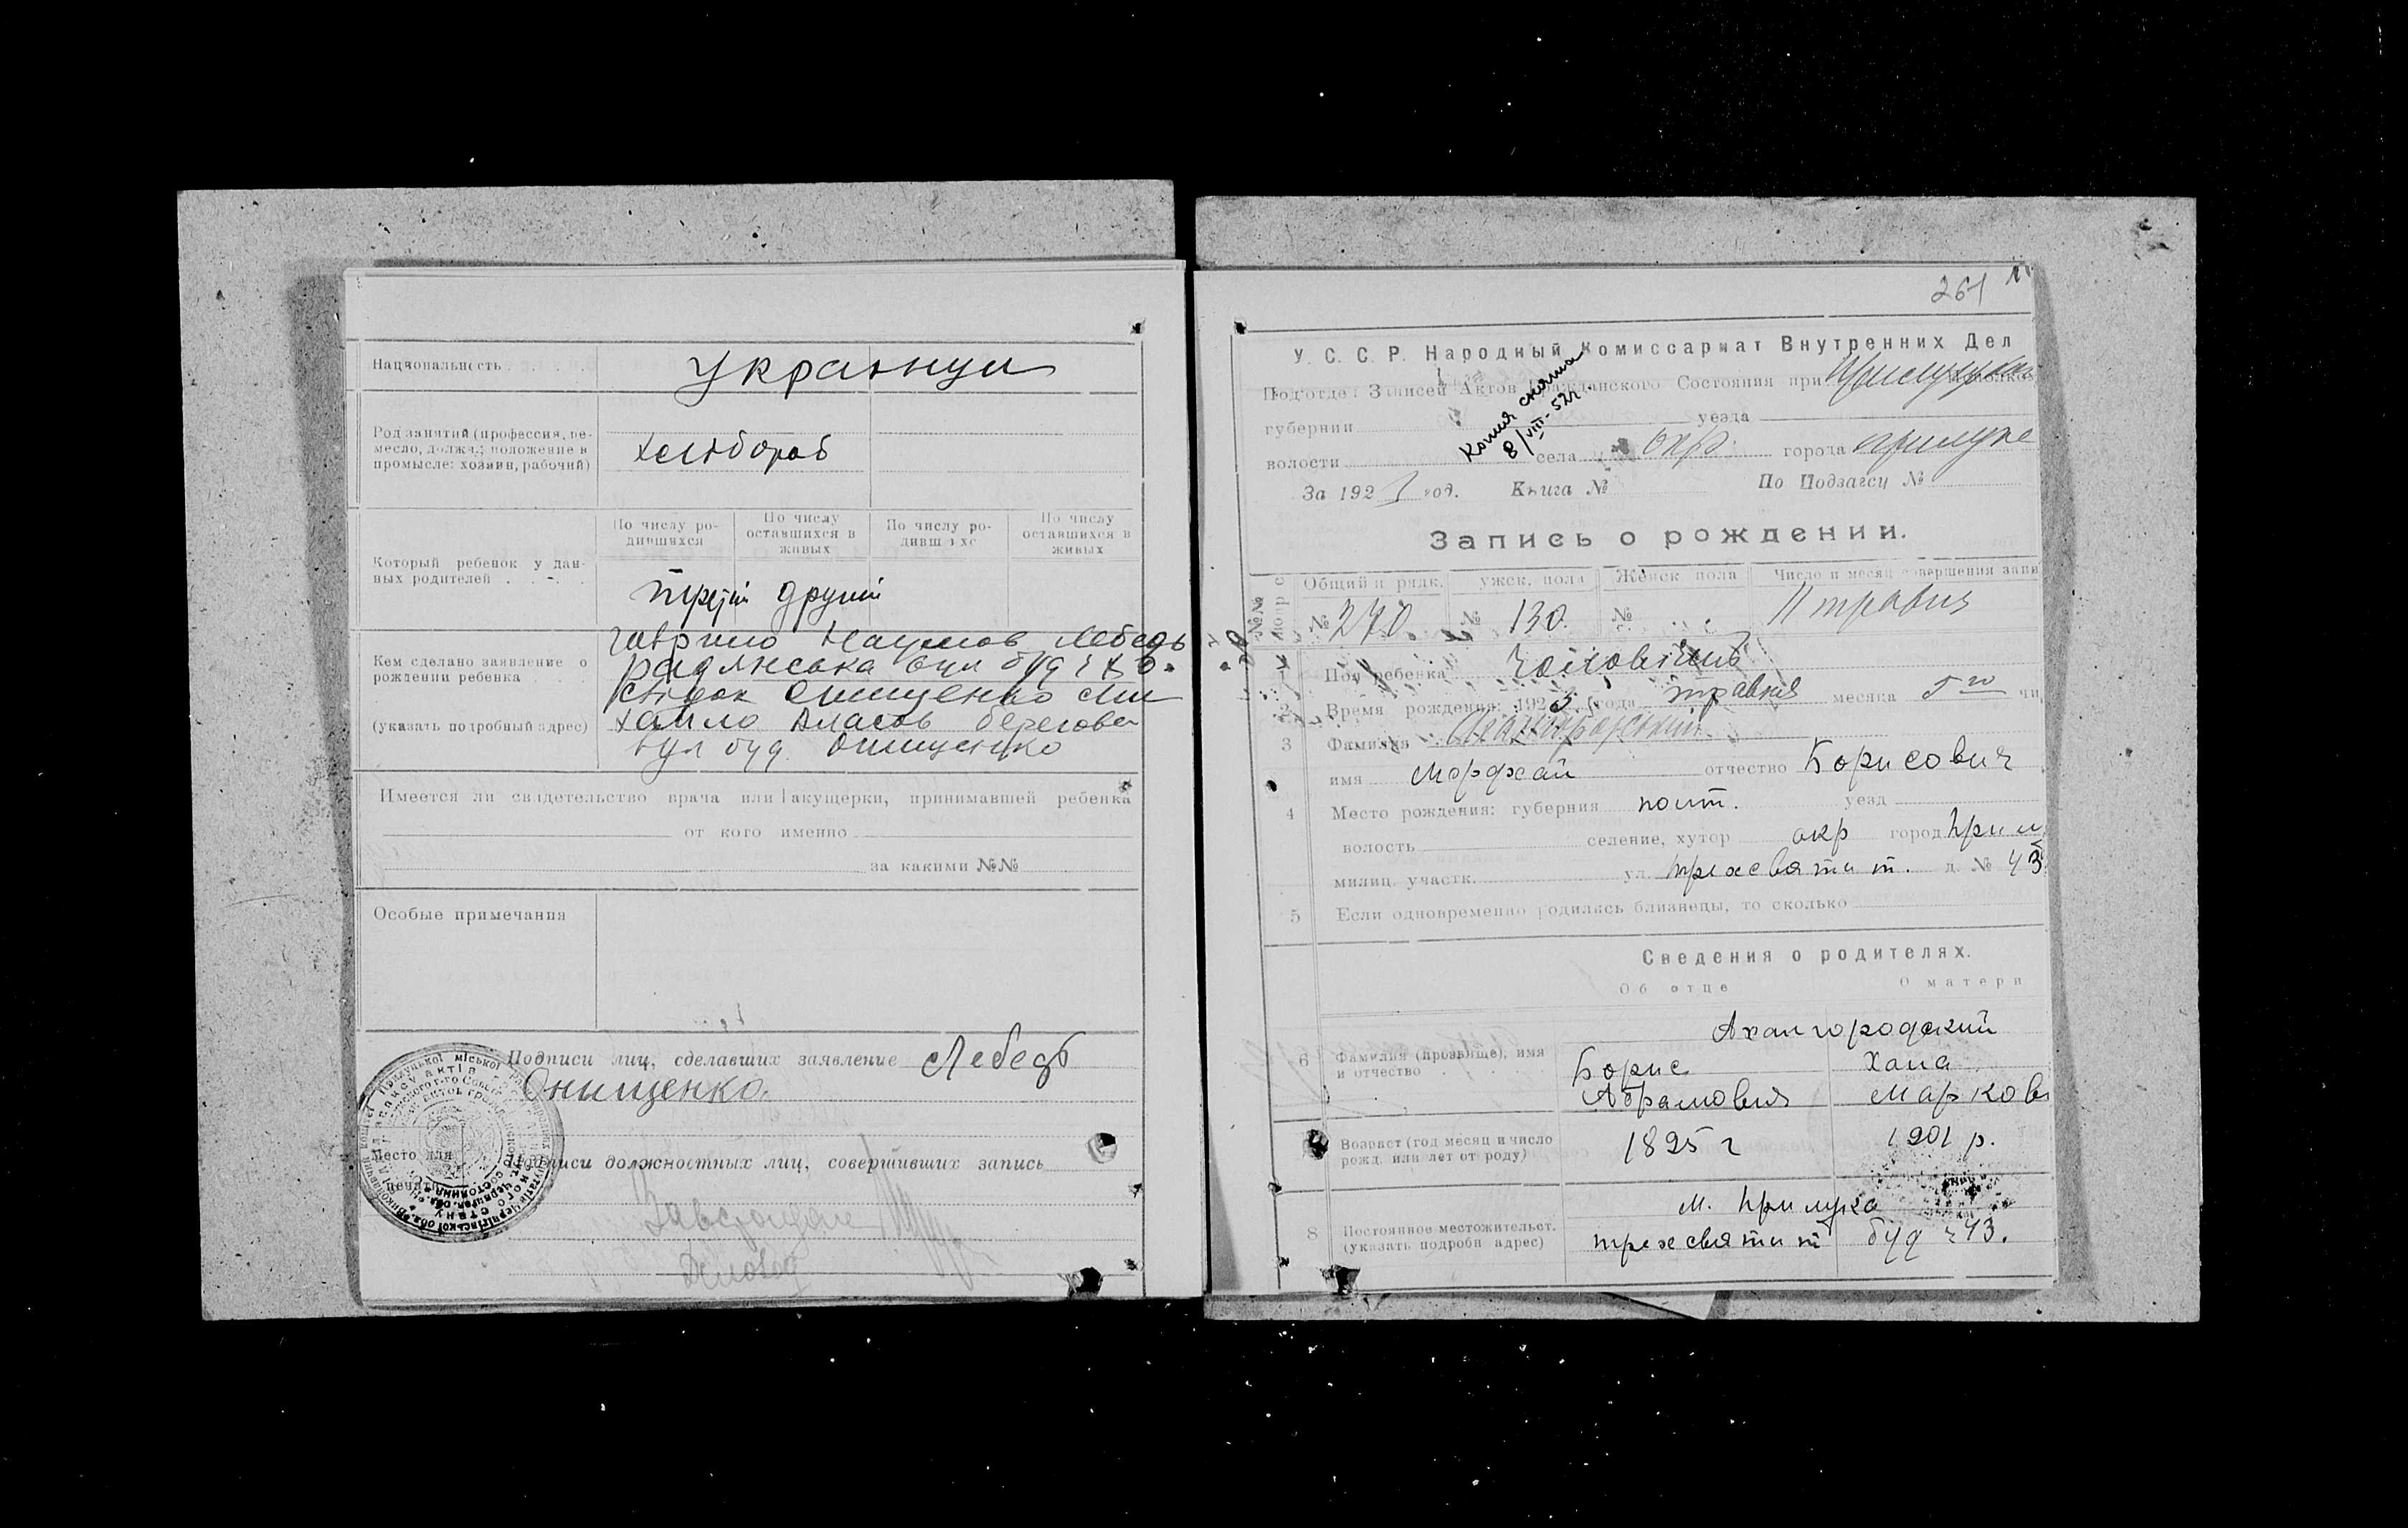 Национальность
украинци
Род занятий (профессия, ре-
месло, должн.; положение в
промысле: хозяин, рабочий)
хлібороб
Который ребенок у дан-
ных родителей
По числу ро-
дившихся
По числу
оставшихся в
живых
По числу ро-
дивш хс
По числу
оставшихся в
живых
третій другий
Кем сделано заявление о
рождении ребенка
(указать подробный адрес)
гаврило Наумов Лебедь
радянська вул буд
свідок Онищенко Ми
хайло Власов берегова
вул буд. Онищенко
Имеется ли свидетельство врача или акушерки, принимавшей ребенка
от кого именно
за какими №№
Особые примечания
Подписи лиц, сделавших заявление Лебедь
Онищенко.
Место для
печати
Подписи должностных лиц, совершивших запись
261
У. С. С. Р. Народный Комиссариат Внутренних Дел
Подотдел Записей Актов Гражданского Состояния при
губернии уезда
волости села окр. города прилуке
Копия снята
8/VIII-52г
За 192 год. Книга № По Подзагсу №
Запись о рождении.
Общий п рядк. ужск. пола Женск пола Число и месяц совершения запи
№ 270. № 130. № 11 травня
1 Пол ребенка чоловічий
2 Время рождения: 1925 года травня месяца 5го чи
3 Фамилия
имя Мордхай отчество Борисович
4 Место рождения: губерния полт. уезд
волость селение, хутор окр город Прил
милиц. участк. ул. трехсвятит. д. № 43
5 Если одновременно родились близнецы, то сколько
Сведения о родителях.
Об отце О матери
6 Фамилия (прозвище), имя
и отчество
Ахангородский
Борис Хана
Абрамович Маркови
Возраст (год месяц и число
рожд. или лет от роду)
1895 г 1901 р.
8 Постоянное местожительст.
(указать подробн адрес)
м. Прилука
трехсвятит буд ч 43.